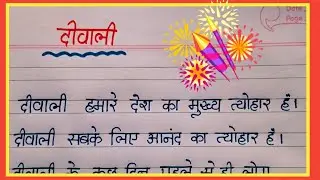 Date
Page
दीवाली
दीवाली हमारे देश का मुख्य त्योहार हैं।
दीवाली सबके लिए आनंद का त्योहार हैं।
दीवाली के कुछ दिन पहले से ही लोग